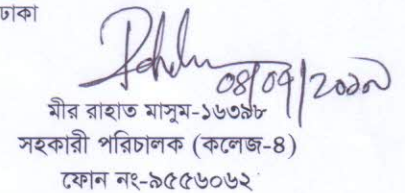 ঢাকা
মীর রাহাত মাসুম-১৬৩৯৮
সহকারী পরিচালক (কলেজ-৪)
ফোন নং-৯৫৫৬০৬২